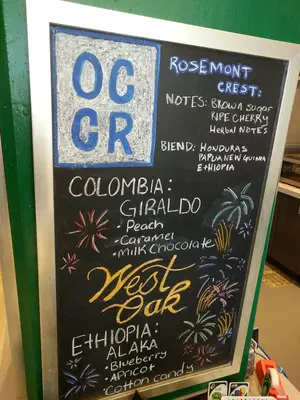 OC
GR
ROSEMONT
CREST:
NOTES: BROWN SUGAR
RIPE CHERRY
HERBAL NOTES
BLEND: HONDURAS
PAPUA NEW GUINEA
ETHIOPIA
COLOMBIA:
GIRALDO
• Peach
• Caramel
• Milk Chocolate
West
Oak
ETHIOPIA:
ALAKA
• Blueberry
• Apricot
• Cotton candy